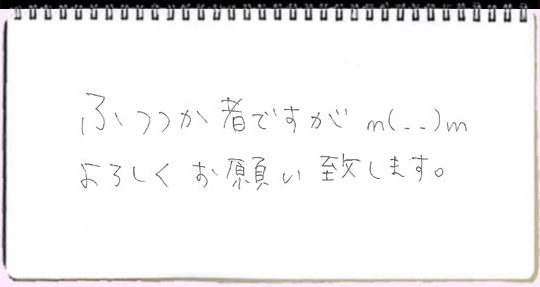 ふつつか者ですが m(..)m
よろしくお願い致します。